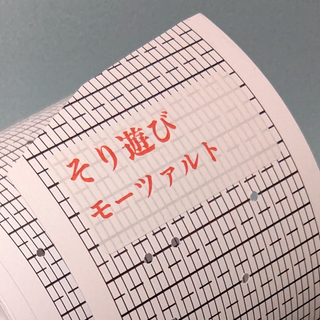 そり遊び
モーツァルト